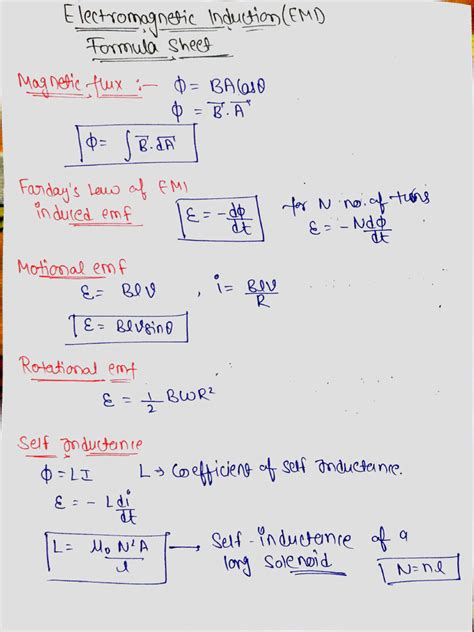 Electromagnetic Induction (EMI)
Formula Sheet
Magnetic flux :- ϕ = BA Cosθ
ϕ = B⃗.A⃗
ϕ = ∫B⃗.dA⃗
Farday's Law of EMI
induced emf ε = -dϕ/dt for N no. of turns
ε = -Ndϕ/dt
Motional emf
ε = Blv , i = Blv/R
ε = Blvsinθ
Rotational emf
ε = 1/2 BωR²
Self Inductance
ϕ = LI L → Coefficient of Self Inductance.
ε = - Ldi/dt
L = μ₀N²A/l → Self-inductance of a
long Solenoid N = nl